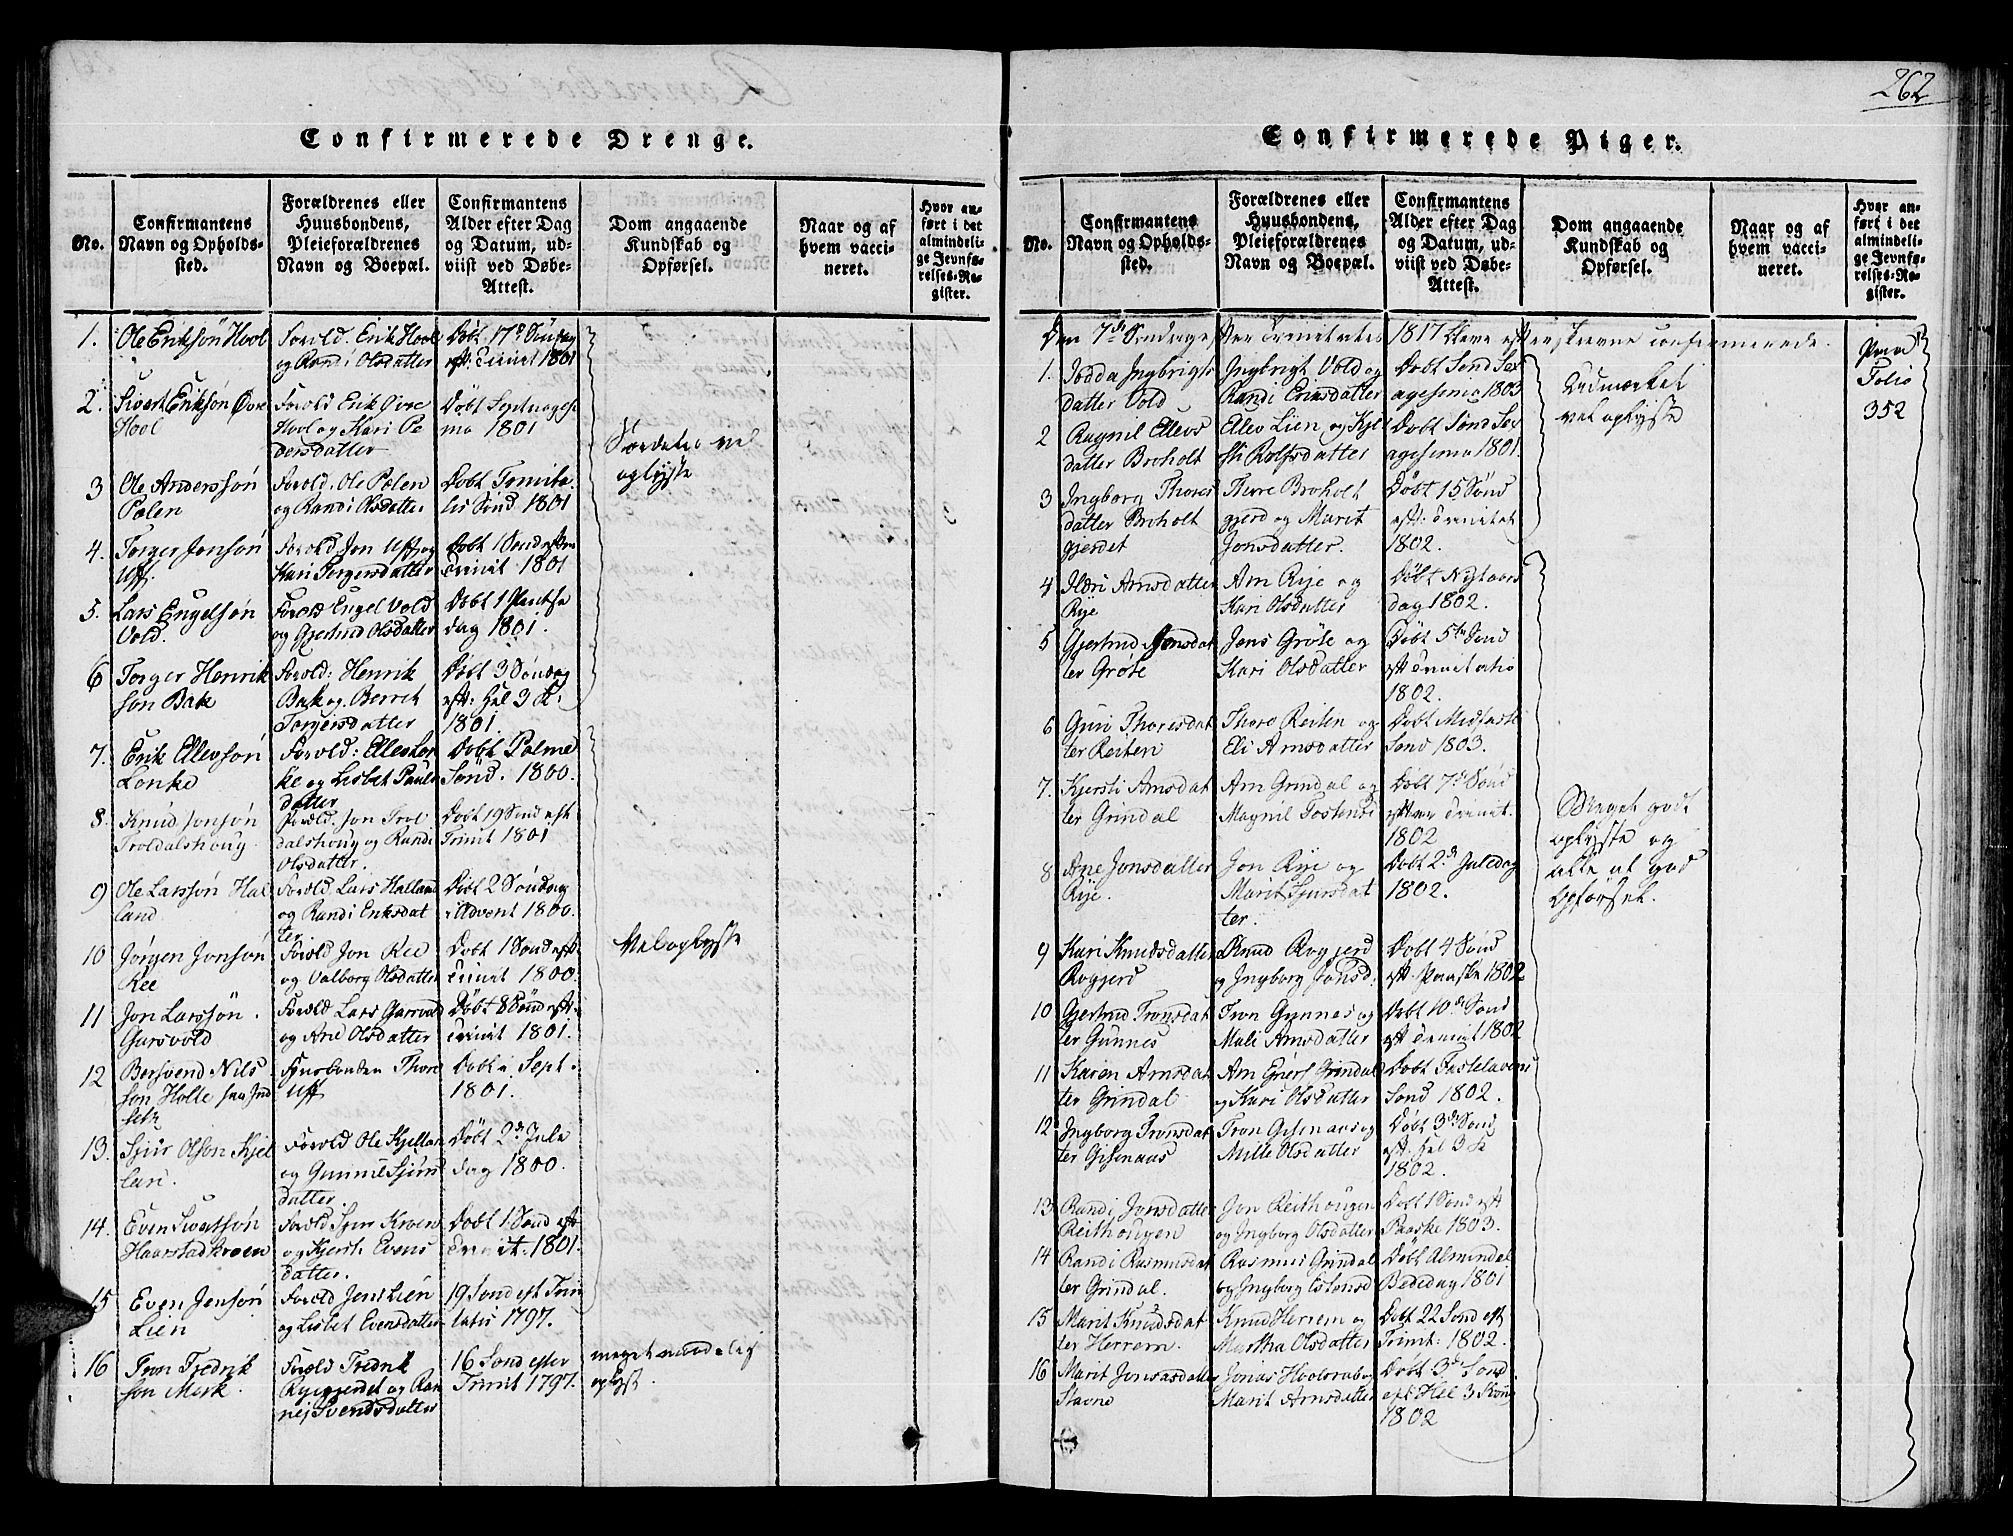 Confirmerede Drenge.
No.
Confirmantens
Navn og Opholds-
sted.
Forældrenes eller
Huusbondens,
Pleieforældrenes
Navn og Boepæl.
Confirmantens
Alder efter Dag
og Datum, ud-
viist ved Døbe-
Attest.
Dom angaaende
Kundskab og
Opførsel.
Naar og af
hvem vacci-
neret.
Hvor an-
ført i det
almindeli-
ge Jevnfø-
relses-Re-
gister.
1. Ole Eriksøn Hool
Forold. Erik Hool
og Randi Olsdatter
Døbt 17d Søndag
eft. Trinit 1801
2. Sivert Eriksøn Øvre
Hool
Forold Erik Øvre
Hool og Kari Pe
dersdatter
Døbt Septuagesi
ma 1801
oplyste
3 Ole Anderssøn
Pælen
Forold. Ole Pælen
og Randi Olsdatter
Døbt
Sønd. 1801
4. Torger Jonsøn
Uff.
Forold Jon Uff og
Kari Torgersdatter
Døbt 1 Sønd efter
Trinit 1801
5. Lars Engelsøn
Vold.
Forold Engel Vold
og Gjertrud Olsdatter
Døbt 1
dag 1801.
6 Torger Henrik
søn Bak
Forold: Henrik
Bak og Berret
Torgersdatter
Døbt 3 Søndag
eft: Hel 3 K.
1801
7. Erik Ellevsøn
Lonke
Forold: Ellev Lon
ke og Lisbet Pauls
datter
Døbt Palme
Sønd. 1800.
8. Knud Jonsøn
Troldalshoug
Forold. Jon Trol
dalshoug og Randi
Olsdatter.
Døbt 19 Sønd eft
Trinit 1801
9 Ole Larssøn Hal
land
Forold Lars Halland
og Randi Eriksdat
ter
Døbt 2 Søndag
i Advent 1800.
Vel oplyste
10 Jørgen Jonsøn
Ree
Forold Jon Ree
og Valborg Olsdatter
Døbt 1 Sønd eft
Trinit 1800.
11 Jon Larssøn
Garsvold
Forold Lars Garsvold
og Ane Olsdatter
Døbt 8 Sønd eft.
Trinit 1801.
12 Bersvend Nils
søn Holte
Huusbonden Thore
Uff
Døbt i Sept.
1801.
13. Sjur Olsøn Kjel
lan.
Forold Ole Kjellan
og Gunnil Sjurs
datter.
Døbt 2d Jule
dag 1800.
14. Even Sivertsøn
Haarstadkroen
Forold Kroen
og Kjersti Evens
datter.
Døbt 1 Sønd eft
Trinit. 1801.
15 Even Jensøn
Lien
Forold Jens Lien
og Lisbet Evensdatter
19 Sønd eft Trin
tatis 1797.
16 Tron Fredrik
søn Merk.
Forold Fredrik
Ryegjerdet og Ran
nej Svendsdatter
16 Sønd efter
Trinit 1797.
meget maadelig
oplyst.
262
Confirmerede Piger.
No.
Confirmantens
Navn og Opholds-
sted.
Forældrenes eller
Huusbondens,
Pleieforældrenes
Navn og Boepæl.
Confirmantens
Alder efter Dag
og Datum, ud-
viist ved Døbe-
Attest.
Dom angaaende
Kundskab og
Opførsel.
Naar og af
hvem vacci-
neret.
Hvor an-
ført i det
almindeli-
ge Jevnfø-
relses-Re-
gister.
Den 7de Søndag efter Trinitatis 1817 bleve efterskrevne confirmerede.
1. Jodda Ingbrigts
datter Vold
Ingbrigt Vold og
Randi Ericsdatter
Døbt Sønd Sex
agesima 1803
Udmærket
vel oplyste
Folio
352
2 Ragnil Ellevs
datter Broholt
Ellev Lien og Kjer
sti Rolfsdatter
Døbt Sønd Sex
agesima 1801.
3 Ingborg Thores
datter Broholt
gjerdet
Thore Broholt
gjerd og Marit
Jonsdatter.
Døbt 15 Sønd
eft: Trinitat
1802.
4 Ildri Arnsdatter
Rye
Arn Rye og
Kari Olsdatter
Døbt Nytaars
dag 1802.
5 Gjertrud Jonsdat
ter Grøte
Jens Grøte og
Kari Olsdatter
Døbt 5te Sønd
eft Trinitatis
1802.
6 Guri Thoresdat
ter Reiten
Thore Reiten og
Eli Arnsdatter
Døbt Midfaste
Sønd 1803.
7. Kjersti Arnsdat
ter Grindal
Arn Grindal og
Magnil Tostensd
Døbt 7d Sønd
efter Trinit.
1802
Meget godt
oplyste og
alle af god
Opførsel.
8 Ane Jonsdatter
Rye.
Jon Rye og
Marit Sjursdat
ter.
Døbt 2d Juledag
1802.
9 Kari Knudsdatter
Rogjerd
Knud Rogjerd
og Ingborg Jonsd.
Døbt 4 Sønd
eft Paaske 1802
10 Gjertrud Tronsdat
ter Gunnes
Tron Gunnes og
Mali Arnsdatter
Døbt 10de Sønd
eft Trinit 1802
11 Karen Arnsdat
ter Grindal
Arn Grindal
og Kari Olsdatter
Døbt Fastelavens
Sønd 1802.
12 Ingborg Tronsdat
ter Gisenaas
Tron Gisenaas og
Mille Olsdatter
Døbt 3de Sønd
eft. Hel 3 K
1802.
13 Randi Jonsdatter
Reithougen
Jon Reithougen
og Ingborg Olsdatter
Døbt 1 Sønd eft
Paaske 1803.
14 Randi Rasmusdat
ter Grindal.
Rasmus Grindal
og Ingborg Estensd
Døbt Almindel.
Bededag 1801
15 Marit Knudsdat
ter Herrem.
Knud Herrem og
Martha Olsdatter
Døbt 22 Sønd eft
Trinit: 1802.
16 Marit Jonasdatter
Stavne
Jonas og
Marit Arnsdatter
Døbt 3de Sønd
eft Hel 3 Kong
1802